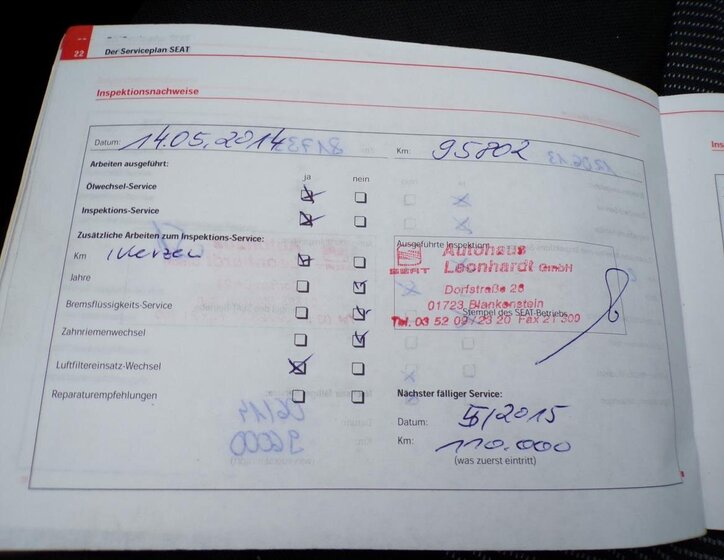 22
Der Serviceplan SEAT
Inspektionsnachweise
Datum: 14.05.2014
Km: 95802
Arbeiten ausgeführt:
ja nein
Ölwechsel-Service
Inspektions-Service
Zusätzliche Arbeiten zum Inspektions-Service:
Km Kerzen
Jahre
Bremsflüssigkeits-Service
Zahnriemenwechsel
Luftfiltereinsatz-Wechsel
Reparaturempfehlungen
Ausgeführte Inspektion:
SEAT
Autohaus
Leonhardt GmbH
Dorfstraße 28
01723 Blankenstein
Stempel des SEAT-Betriebs
Tel. 03 52 09 / 23 20 Fax 21 309
Nächster fälliger Service:
Datum: 5/2015
Km: 110.000
(was zuerst eintritt)
Ins